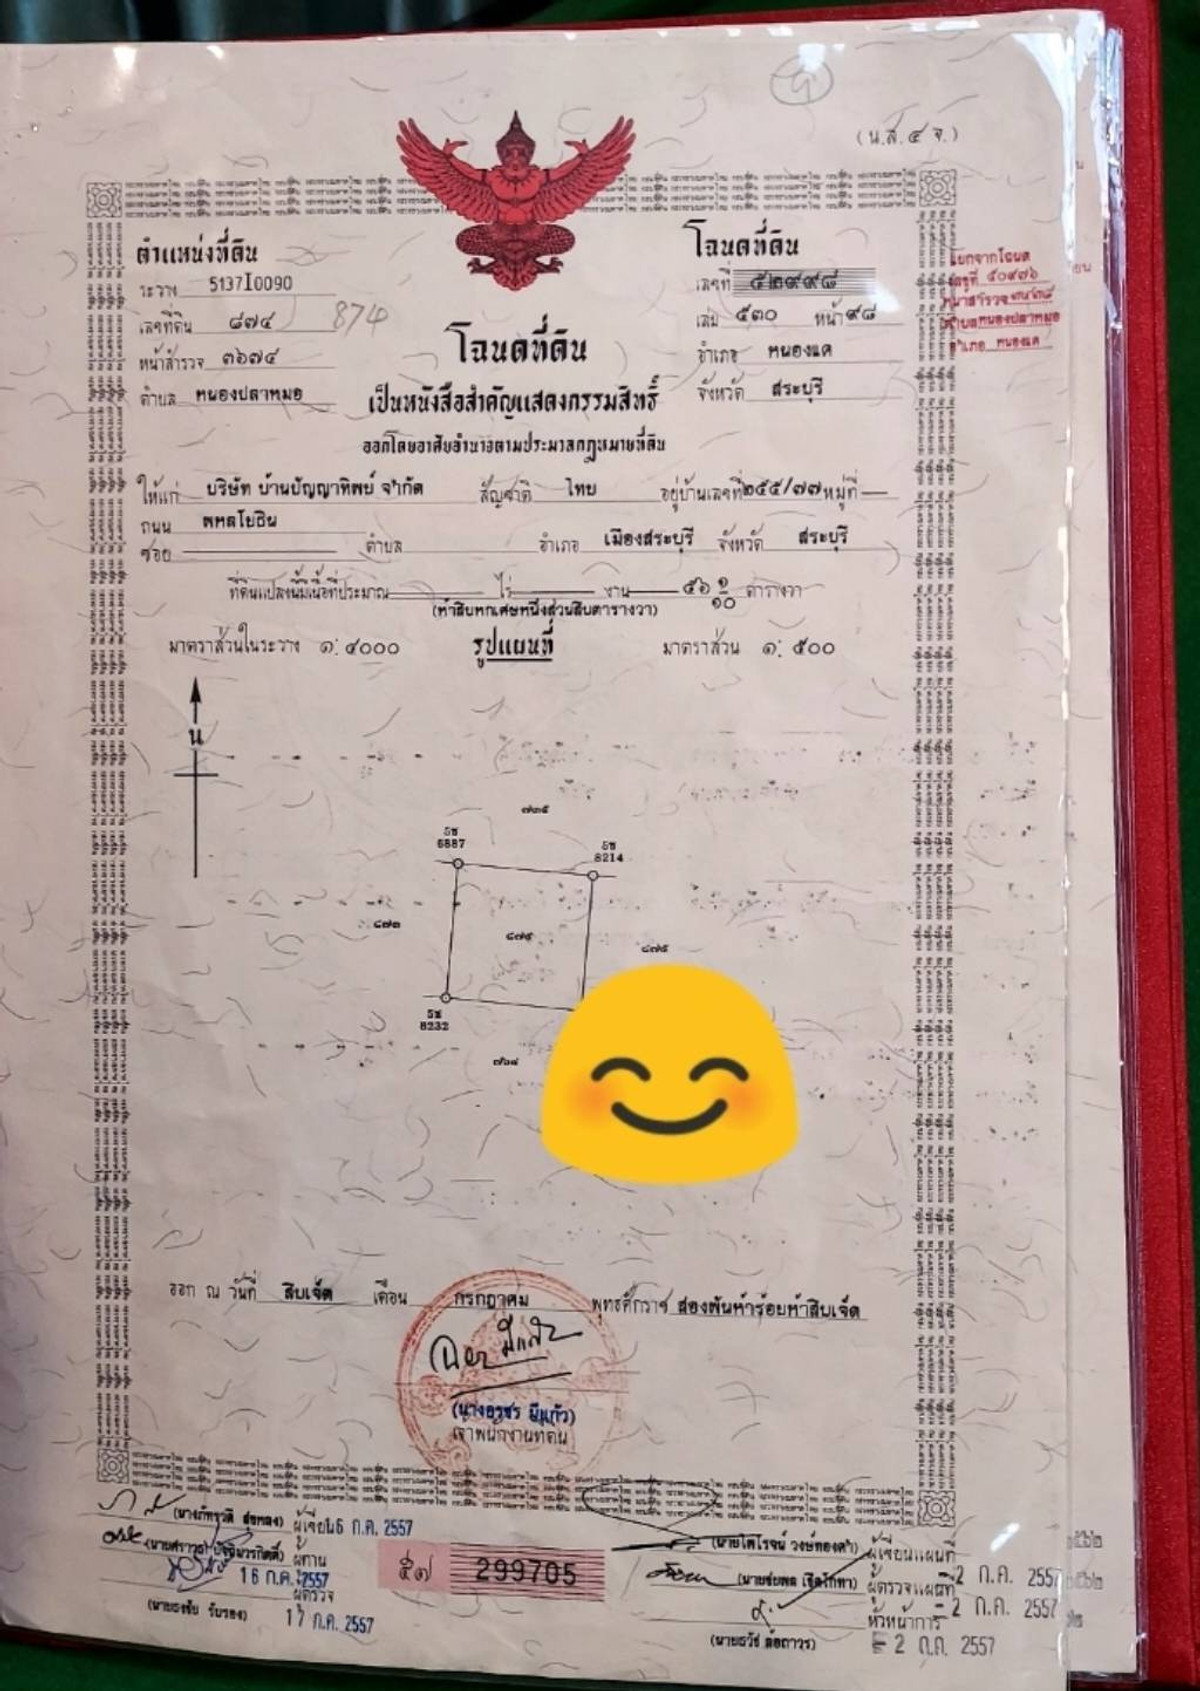 (น.ส.๔ จ.)
ตำแหน่งที่ดิน
ระวาง 5137I0090
เลขที่ดิน ๘๗๔ 874
หน้าสำรวจ ๓๖๗๔
ตำบล หนองปลาหมอ
โฉนดที่ดิน
เลขที่ ๕๒๙๙๘
เล่ม ๕๓๐ หน้า ๙๘
อำเภอ หนองแค
จังหวัด สระบุรี
แยกจากโฉนด
เลขที่ ๕๐๙๗๖
หน้าสำรวจ
ตำบลหนองปลาหมอ
อำเภอ หนองแค
โฉนดที่ดิน
เป็นหนังสือสำคัญแสดงกรรมสิทธิ์
ออกโดยอาศัยอำนาจตามประมวลกฎหมายที่ดิน
ให้แก่ บริษัท บ้านปัญญาทิพย์ จำกัด สัญชาติ ไทย อยู่บ้านเลขที่ ๒๕๕/๗๗ หมู่ที่ —
ถนน พหลโยธิน
ซอย ตำบล อำเภอ เมืองสระบุรี จังหวัด สระบุรี
ที่ดินแปลงนี้มีเนื้อที่ประมาณ ไร่ งาน ๕๖ ๑/๑๐ ตารางวา
(ห้าสิบหกเศษหนึ่งส่วนสิบตารางวา)
มาตราส่วนในระวาง ๑: ๔๐๐๐ รูปแผนที่ มาตราส่วน ๑: ๕๐๐
น
๗๓๕
5ช
6887
5ช
8214
๘๗๓ ๘๗๔ ๘๗๕
5ช
8232
ออก ณ วันที่ สิบเจ็ด เดือน กรกฎาคม พุทธศักราช สองพันห้าร้อยห้าสิบเจ็ด
(นางอรชร มีแก้ว)
เจ้าพนักงานที่ดิน
ผู้เขียน 6 ก.ค. 2557
ผู้ทาน
16 ก.ค. 2557
ผู้ตรวจ
17 ก.ค. 2557
๕๗ 299705
(นายไพโรจน์ วงษ์ทองดำ) ผู้เขียนแผนที่
ผู้ตรวจแผนที่ 2 ก.ค. 2557
หัวหน้าการ 2 ก.ค. 2557
(นายธวัช ล้อถาวร) 2 ก.ค. 2557